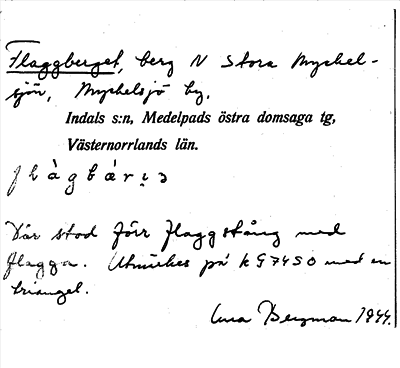 Flaggberget, berg N Stora Myckel-
sjön, Myckelsjö by,
Indals s:n, Medelpads östra domsaga tg,
Västernorrlands län.
Där stod förr flaggstång med
flagga. Utmärkes på k G7450 med en
triangel.
Bergman 1944.